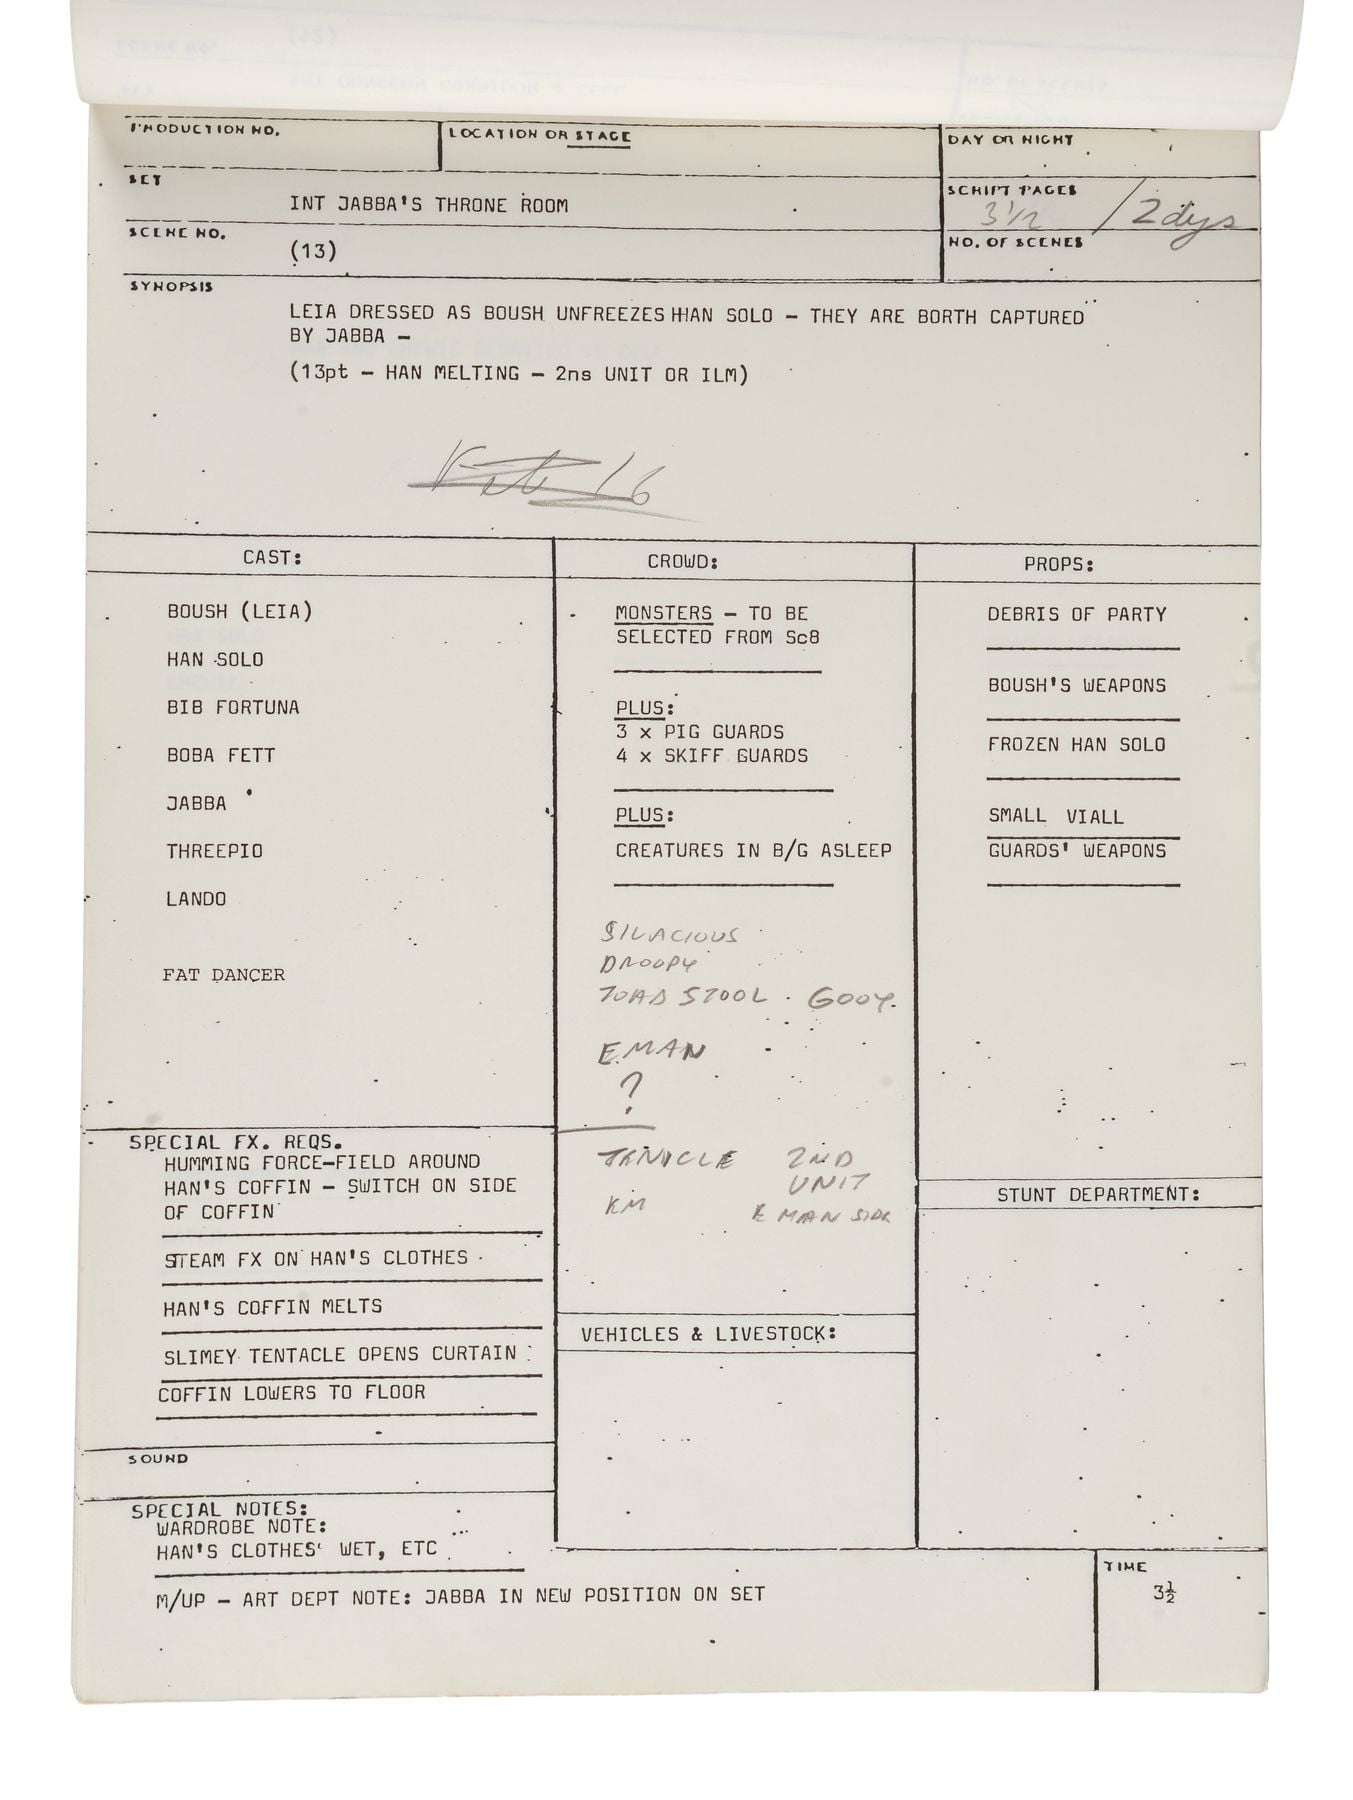 PRODUCTION NO.
LOCATION OR STAGE
DAY OR NIGHT
SET
INT JABBA'S THRONE ROOM
SCRIPT PAGES
3 1/2 / 2 dys
SCENE NO.
(13)
NO. OF SCENES
SYNOPSIS
LEIA DRESSED AS BOUSH UNFREEZES HAN SOLO - THEY ARE BORTH CAPTURED
BY JABBA -
(13pt - HAN MELTING - 2ns UNIT OR ILM)
16
CAST:
BOUSH (LEIA)
HAN SOLO
BIB FORTUNA
BOBA FETT
JABBA
THREEPIO
LANDO
FAT DANCER
CROWD:
MONSTERS - TO BE
SELECTED FROM Sc8
PLUS:
3 x PIG GUARDS
4 x SKIFF GUARDS
PLUS:
CREATURES IN B/G ASLEEP
SILACIOUS
DROOPY
TOAD STOOL . GOOY.
E.MAN
?
TENICLE 2ND
UNIT
KM E MAN SIDE
PROPS:
DEBRIS OF PARTY
BOUSH'S WEAPONS
FROZEN HAN SOLO
SMALL VIALL
GUARDS' WEAPONS
SPECIAL FX. REQS.
HUMMING FORCE-FIELD AROUND
HAN'S COFFIN - SWITCH ON SIDE
OF COFFIN
STEAM FX ON HAN'S CLOTHES
HAN'S COFFIN MELTS
SLIMEY TENTACLE OPENS CURTAIN
COFFIN LOWERS TO FLOOR
STUNT DEPARTMENT:
VEHICLES & LIVESTOCK:
SOUND
SPECIAL NOTES:
WARDROBE NOTE:
HAN'S CLOTHES' WET, ETC
M/UP - ART DEPT NOTE: JABBA IN NEW POSITION ON SET
TIME
3½